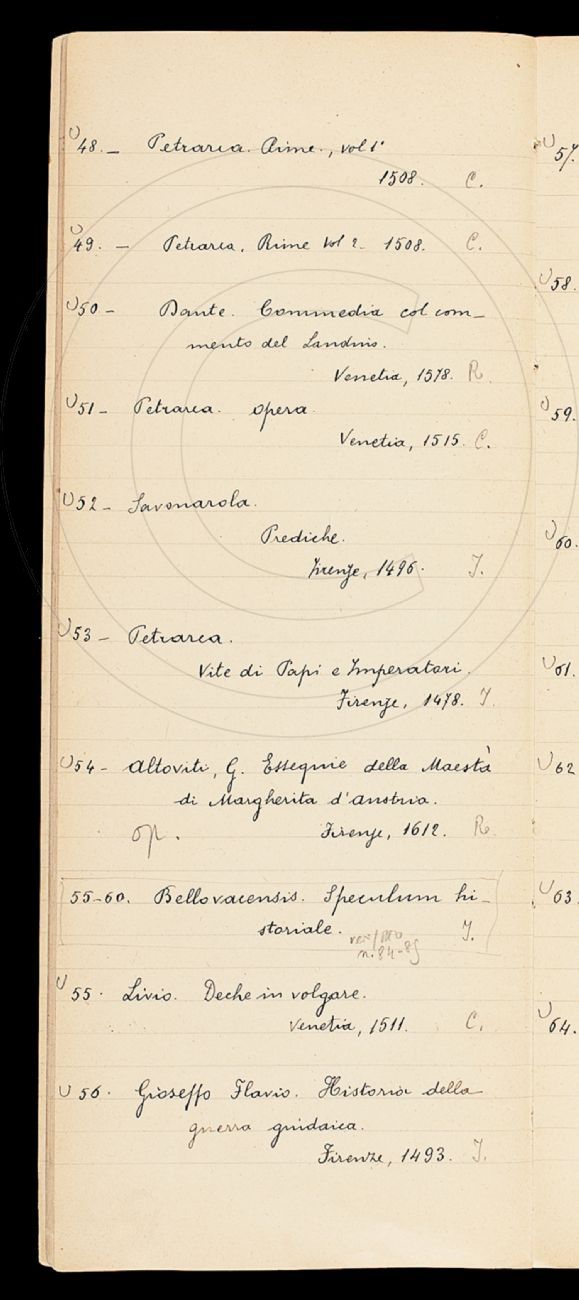 48. — Petrarca. Rime., vol 1°
1508. C.
49. — Petrarca, Rime Vol 2. 1508. C.
50 — Dante. Commedia col com-
mento del Landino.
Venetia, 1578. R.
51 — Petrarca. opera.
Venetia, 1515. C.
52 — Savonarola.
Prediche.
Firenze, 1496. I.
53 — Petrarca.
Vite di Papi e Imperatori.
Firenze, 1478. I.
54 — Altoviti, G. Essequie della Maestà
di Margherita d'Austria.
op. Firenze, 1612. R.
55-60. Bellovacensis. Speculum hi-
storiale. I.
n. 84-89
55. Livio. Deche in volgare.
Venetia, 1511. C.
56. Gioseffo Flavio. Historia della
guerra giudaica.
Firenze, 1493. I.
57.
58.
59.
60.
61.
62
63
64.